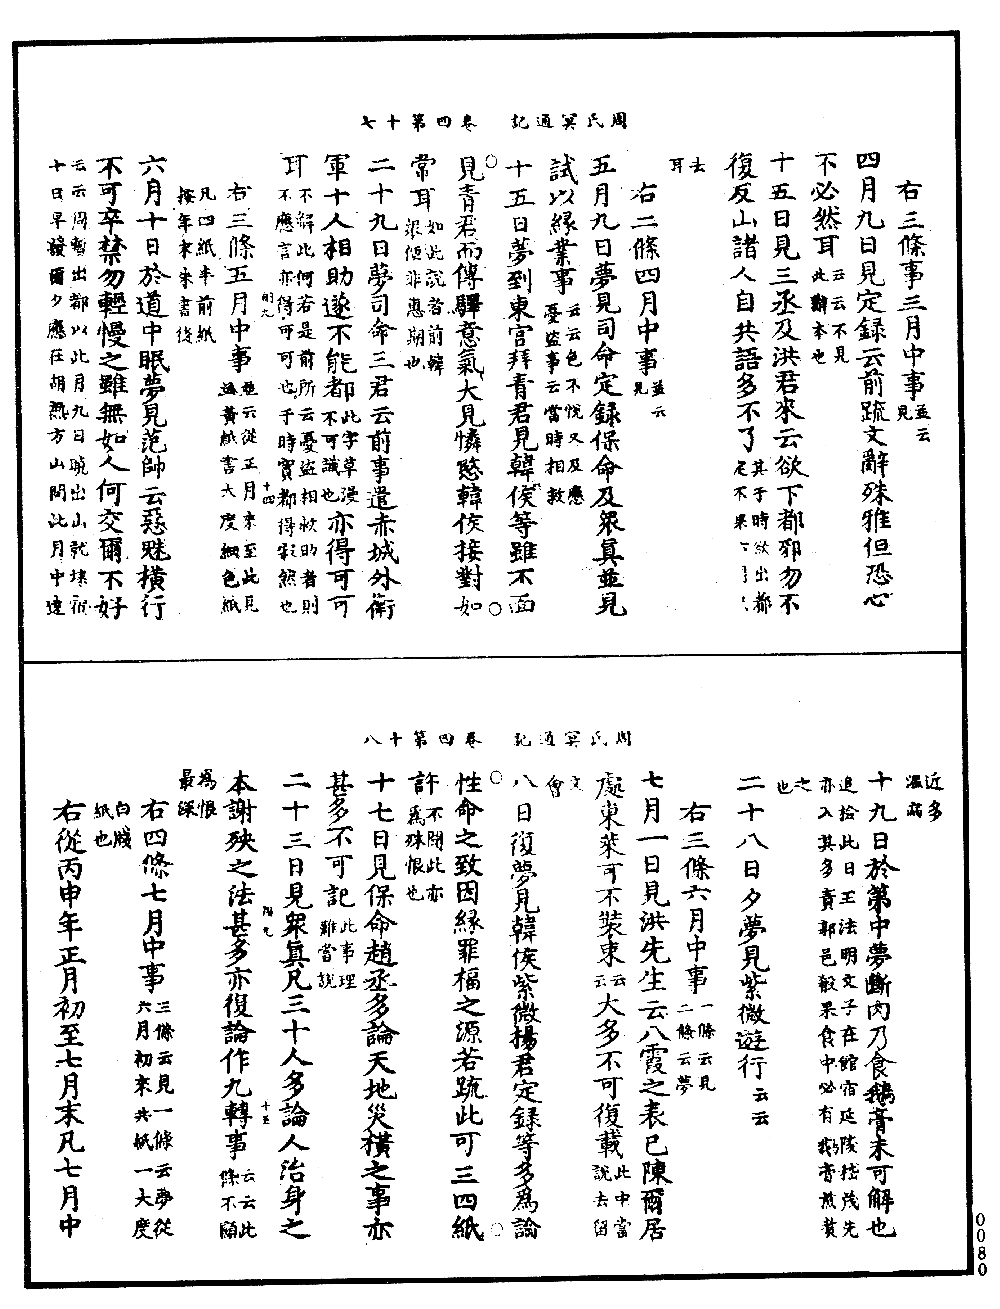 周氏冥通記　卷四第十七
右三條事三月中事並云見
四月九日見定錄云前疏文辭殊雅但恐心
不必然耳云云不見此辭本也
十五日見三丞及洪君來云欲下都邪勿不
復反山諸人自共語多不了其于時欲出都定不果
去耳
右二條四月中事並云見
五月九日夢見司命定錄保命及眾真並見
試以緣業事云云色不悅又及應憂盜事云當時相救
十五日夢到東宮拜青君見韓侯等雖不面
見青君而傳驛意氣大見憐愍韓侯接對如
常耳如此說者前韓泯便非應期也
二十九日夢司命三君云前事遣赤城外衛
軍十人相助遂不能都此字草漫不可識也亦得可可
耳不解此何若是前所云憂盜相救助者則不應言亦得可可也于時實都得寂然也
右三條五月中事並云從正月來至此見過黃紙書大度細色紙
凡四紙半前紙按年末來書後
六月十日於道中眠夢見范帥云惡魅橫行
不可卒禁勿輕慢之雖無如人何交爾不好
云云周暫出都以此月九日晚出山就埭宿
十日早接爾夕應在胡熟方山間此月中建
周氏冥通記　卷四第十八
近多溫病
十九日於第中夢斷肉乃食鵝膏未可解也
追檢此日王法明文子在館宿延陵嵇茂先
亦入其多賫郭邑穀果食中必有鵝膏煎煑
之也
二十八日夕夢見紫微遊行云云
右三條六月中事一條云見二條云夢
七月一日見洪先生云八霞之表已陳爾居
處東萊可不裝束云云大多不可復載此中當說去留
文會
八日復夢見韓侯紫微楊君定錄等多為論
性命之致因緣罪福之源若疏此可三四紙
許不聞此亦為殊恨也
十七日見保命趙丞多論天地災橫之事亦
甚多不可記此事理難當說
二十三日見眾真凡三十人多論人治身之
本謝殃之法甚多亦復論作九轉事云云此條不顯
為恨最深
右四條七月中事三條云見一條云夢從六月初來共紙一大度
白牋紙也
右從丙申年正月初至七月末凡七月中
0080